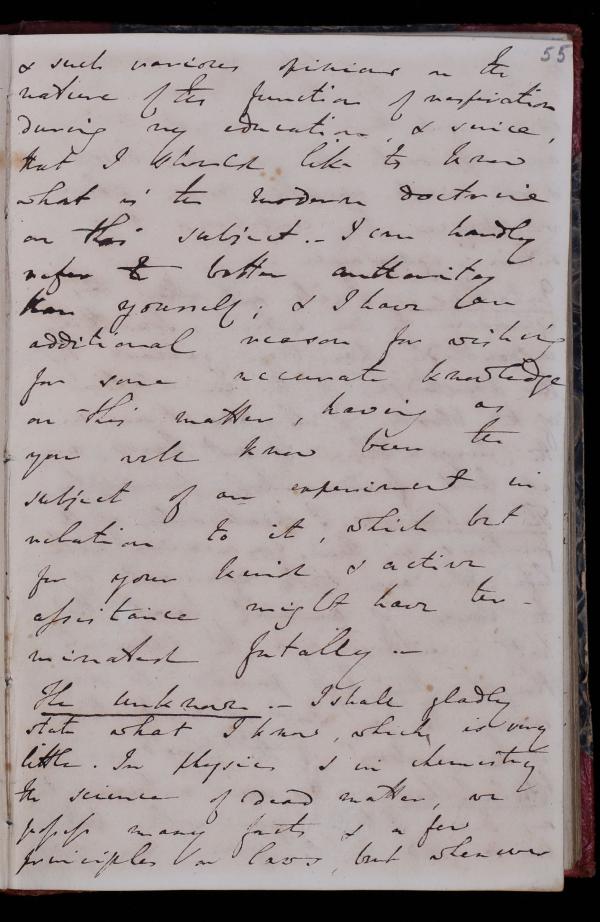 55
& such various opinions on the
nature of the function of respiration
during my education, & since,
that I should like to know
what is the modern doctrine
on this subject. - I can hardly
refer to better authority
than yourself; & I have an
additional reason for wishing
for some accurate knowledge
on this matter, having as
you well know been the
subject of an experiment in
relation to it, which but
for your kind & active
assistance might have ter-
minated fatally. -
The unknown. - I shall gladly
state what I know, which is very
little. In physics & in chemistry
the science of dead matter, we
possess many facts & a few
principles or laws, but whenever